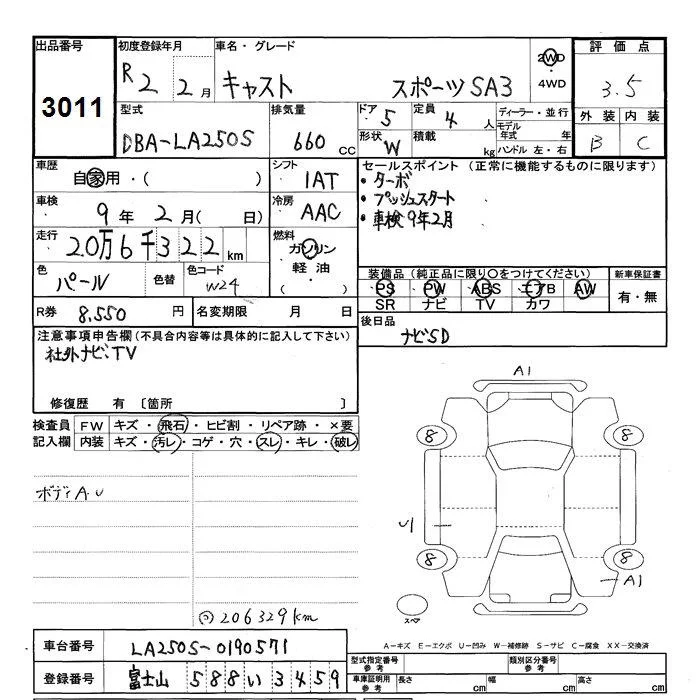 出品番号 初度登録年月 車名・グレード 評価点
3011 R2 2月 キャスト スポーツSA3 2WD ・ 4WD 3.5
型式 排気量 ドア 5 定員 4人 ディーラー・並行 外装 内装
DBA-LA250S 660cc 形状 W 積載 kg モデル年式 年 ハンドル 左・右 B C
車歴 自家用・( ) シフト IAT セールスポイント (正常に機能するものに限ります)
・ターボ
・プッシュスタート
・車検9年2月
車検 9年 2月( 日) 冷房 AAC
走行 20万6千322km 燃料 ガソリン・軽油・( )
色 パール 色替 色コード W24
装備品(純正品に限り○をつけてください) 新車保証書
PS PW ABS エアB AW 有・無
SR ナビ TV カワ
R券 8,550円 名変期限 月 日 後日品
ナビSD
注意事項申告欄(不具合内容等は具体的に記入して下さい)
社外ナビ、TV
修復歴 有 〔箇所 〕
検査員記入欄 FW キズ・飛石・ヒビ割・リペア跡・×要
内装 キズ・汚レ・コゲ・穴・スレ・キレ・破レ
ボディA.U
◎206329km
A1
8 8
U1
8 8
A1
スペア
A-キズ E-エクボ U-凹み W-補修跡 S-サビ C-腐食 XX-交換済
車台番号 LA250S-0190571 型式指定番号 参考 類別区分番号 参考
登録番号 富士山 588 い 3459 車庫証明用 参考 長さ cm 幅 cm 高さ cm